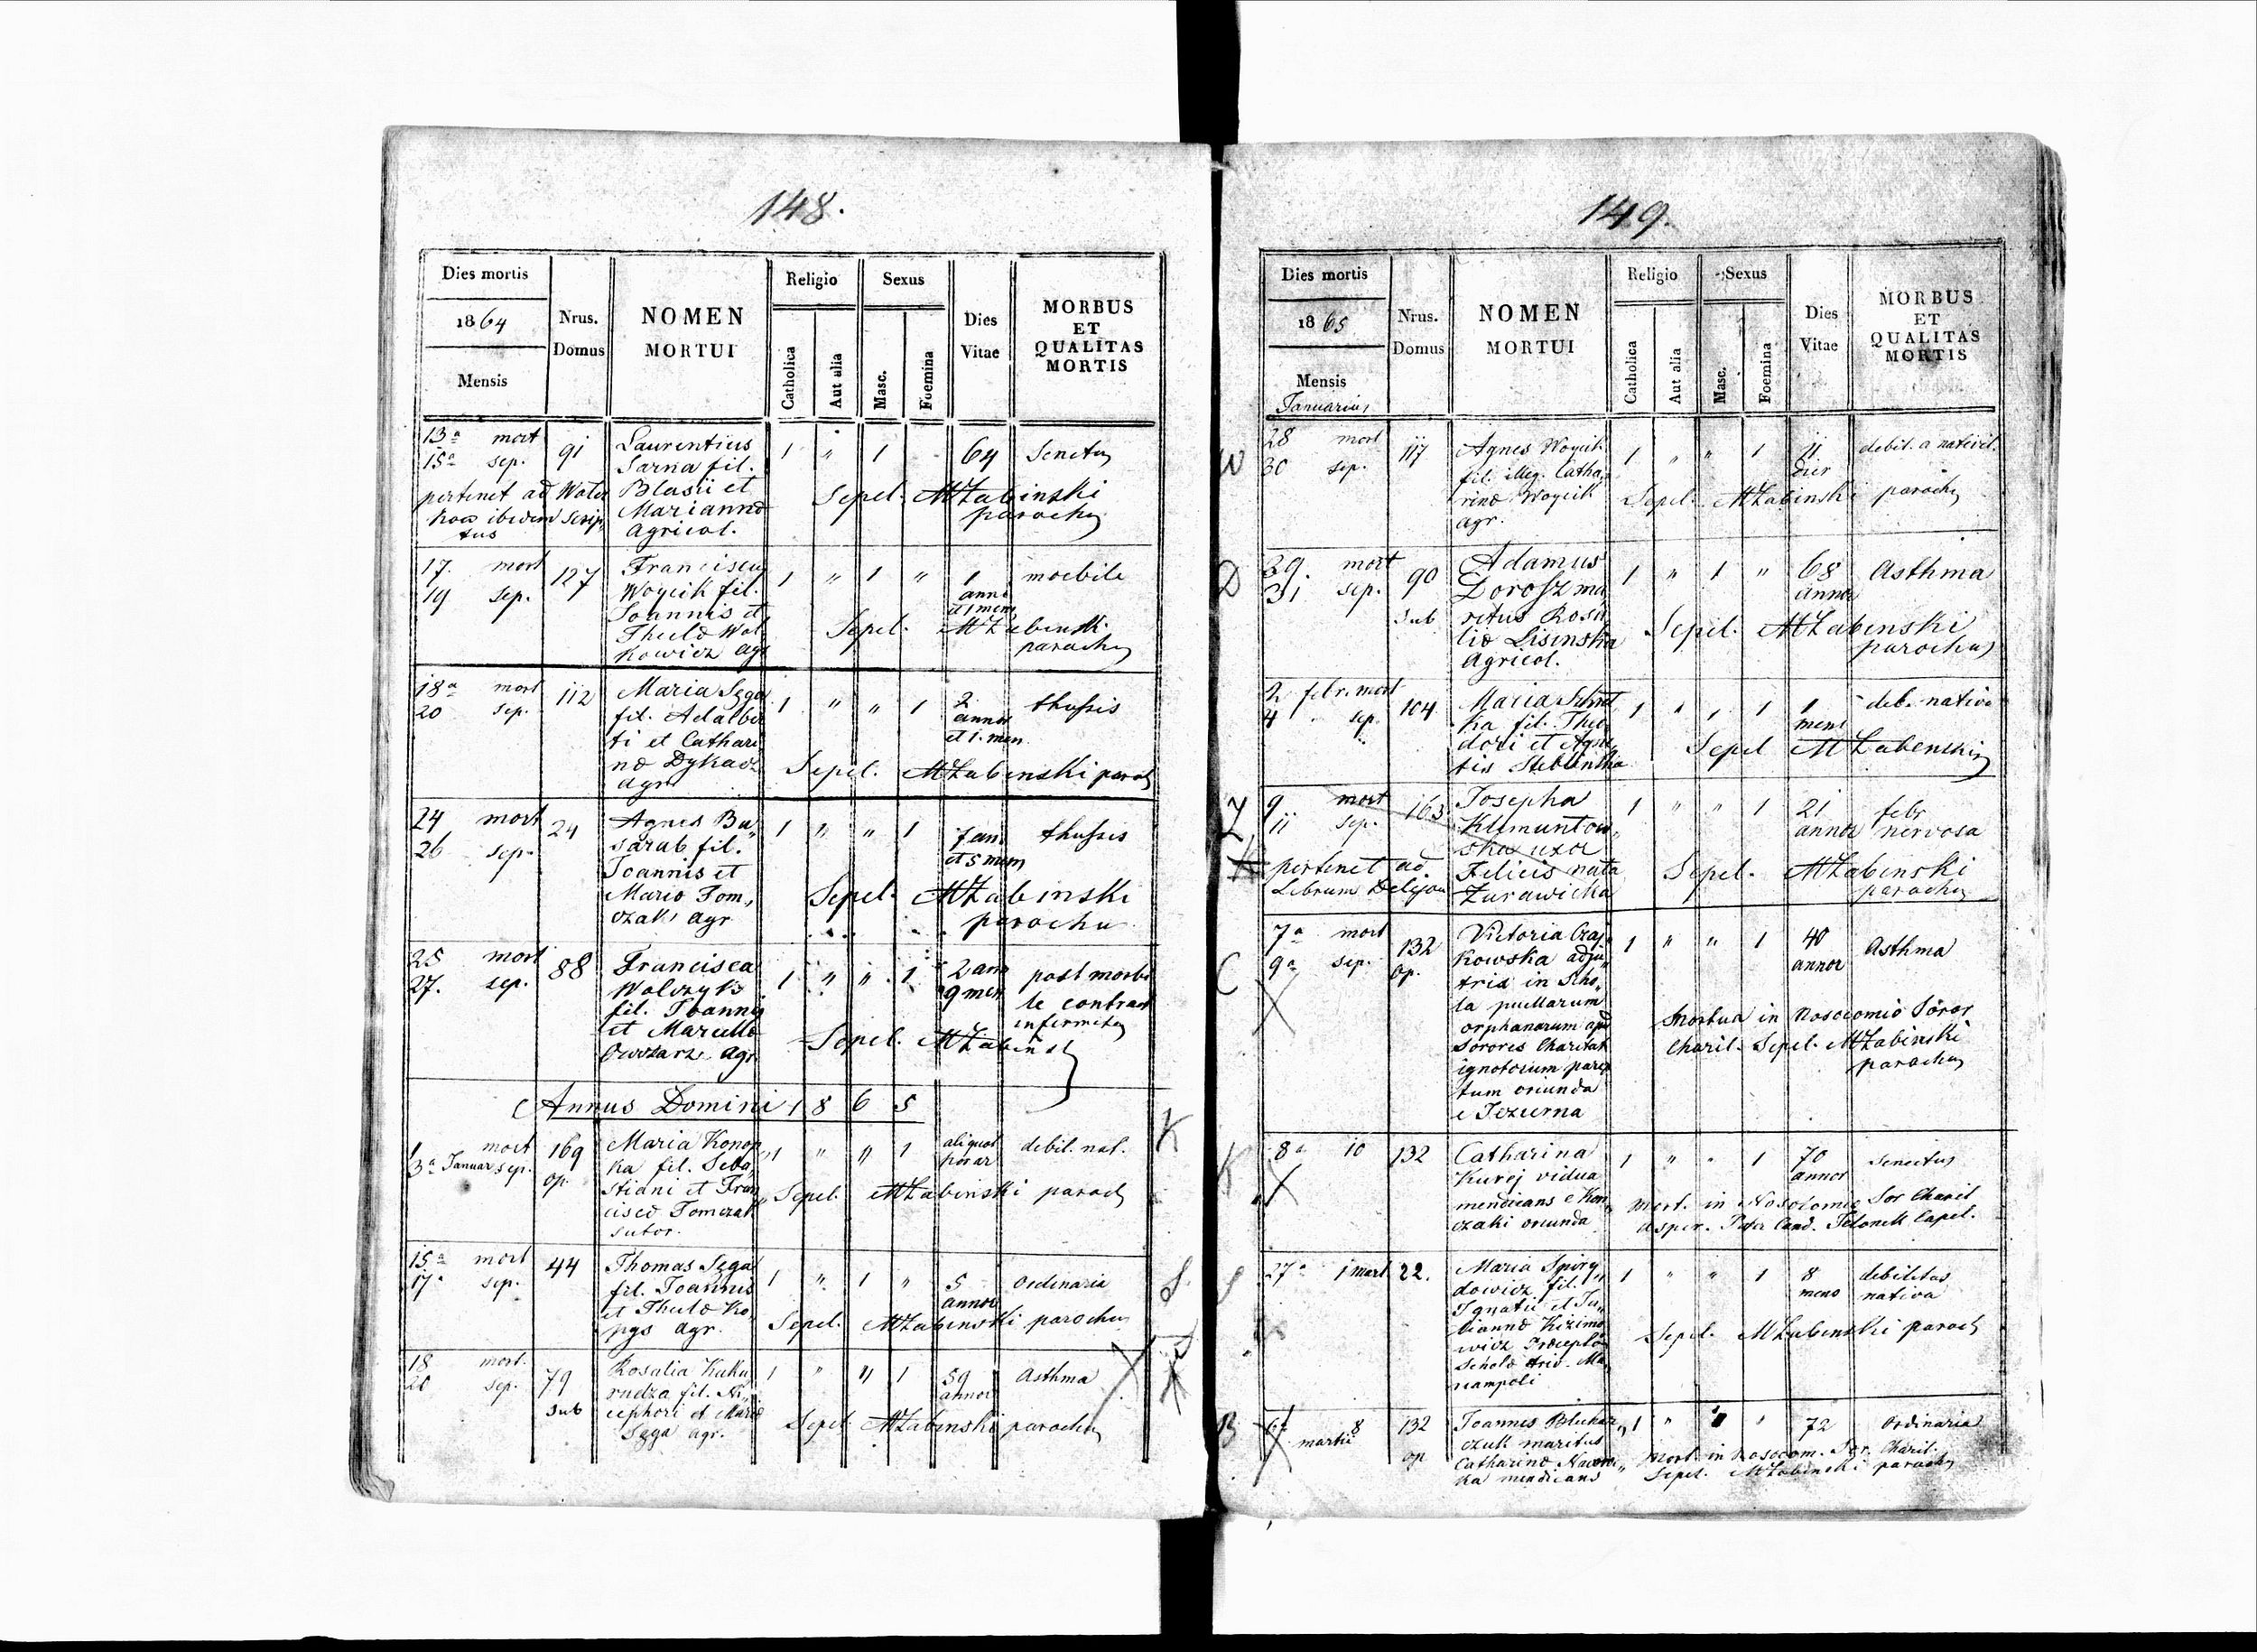 148.
Dies mortis
1864
Mensis
Nrus.
Domus
NOMEN
MORTUI
Religio
Catholica
Aut alia
Sexus
Masc.
Foemina
Dies
Vitae
MORBUS
ET
QUALITAS
MORTIS
13a mort
15a sep.
pertinet ad
hoc ibidem Scrip
tus
91
Laurentius
Sarna fil.
Blasii et
Marianna
Agricol.
1 " 1
64
Senectus
Sepel. MŁabinski
parochus
17. mort
19 sep.
127
Franciscus
Woycik fil.
Joannis et
Theclo Wol
kowicz agr
1 " 1 "
1
anni
et 1 mens
morbile
Sepel. MŁabinski
parochus
18a mort
20 sep.
112
Maria Szga
fil. Adalber
ti et Cathari
no Dykacz
agr
1 " " 1
2
annor
et 1. men.
thussis
Sepel. MŁabinski paroch
24 mort
26 sep.
24
Agnes Bu„
sarab fil.
Joannis et
Mario Tom„
czak agr
1 " " 1
7 ann
et 5 men
thussis
Sepel. MŁabinski
parochu
25 mort
27. sep.
88
Francisca
Walczyk
fil. Joannis
et Marcello
Owczarz agr
1 " " 1
2 ann
9 men
post morbi
le contract
infirmitas
Sepel. MŁabinski
Annus Domini 1865
1 mort
3a Januar sep.
169
op.
Maria Konop„
ka fil. Seba„
stiani et Fran„
cisco Tomczak
sutor.
1 " " 1
aliquot
horar
debil. nat.
Sepel. MŁabinski paroch
K
15a mort
17a sep.
44
Thomas Szga
fil. Joannis
et Theclo Ko„
pys agr.
1 " 1 "
5
annor
Ordinaria
Sepel. MŁabinski parochus
S.
18 mort.
20 sep.
79
sub
Rosalia Kuku„
rudza fil. Ni„
cephori et Mario
Szga agr.
1 " " 1
59
annor
Asthma
Sepel MŁabinski parochus
149.
Dies mortis
1865
Mensis
Januarius
Nrus.
Domus
NOMEN
MORTUI
Religio
Catholica
Aut alia
Sexus
Masc.
Foemina
Dies
Vitae
MORBUS
ET
QUALITAS
MORTIS
W
28 mort
30 sep.
117
Agnes Woycik
fil. illeg. Catha„
rino Woycik
agr.
1 " " 1
11
dier
debil. a nativit.
Sepel. MŁabinski parochus
D
29. mort
31 sep.
90
sub
Adamus
Dorosz ma
ritus Rosa
lio Lisinska
Agricol.
1 " 1 "
68
annor
Asthma
Sepel. MŁabinski
parochus
2 febr. mort
4 sep.
104
fil. Theo
dori et Agne„
tis Steblinska
1 " " 1
1
mens
deb. nativa
Sepel MŁabinski
9 mort
11 sep.
163
pertinet ad
Librum
Josepha
Klimuntow„
ska uxor
Felicis nata
Zurawicka
1 " " 1
21
annor
febr
nervosa
Sepel. MŁabinski
parochus
C
7a mort
9a sep.
132
op.
Victoria Czaj„
kowska adju„
trix in Scho„
la puellarum
orphanarum apud
Sorores Charitat
ignotorum paren
tum oriunda
e Jezierna
1 " " 1
40
annor
Asthma
Mortua in Nosocomio Soror
Charit. Sepel. MŁabinski
parochus
K
8a 10
132
Catharina
Kuroj vidua
mendicans e Kon„
czaki oriunda
1 " " 1
70
annor
Senectus
Mort. in Nosocomio Sor Charit
Capel.
S
27a 1 mart
22.
Maria Spiry„
dowicz fil.
Ignatii et Ju„
lianno
wicz Precepto
Scholo triv. Ma„
riampoli
1 " " 1
8
mens
debilitas
nativa
Sepel. MŁabinski paroch
B
6a 8
martii
132
op
Joannes
czuk maritus
Catharino
ka mendicans
72
Ordinaria
Mort. in Nosocom. Sor. Charit.
Sepel. MŁabinski parochus